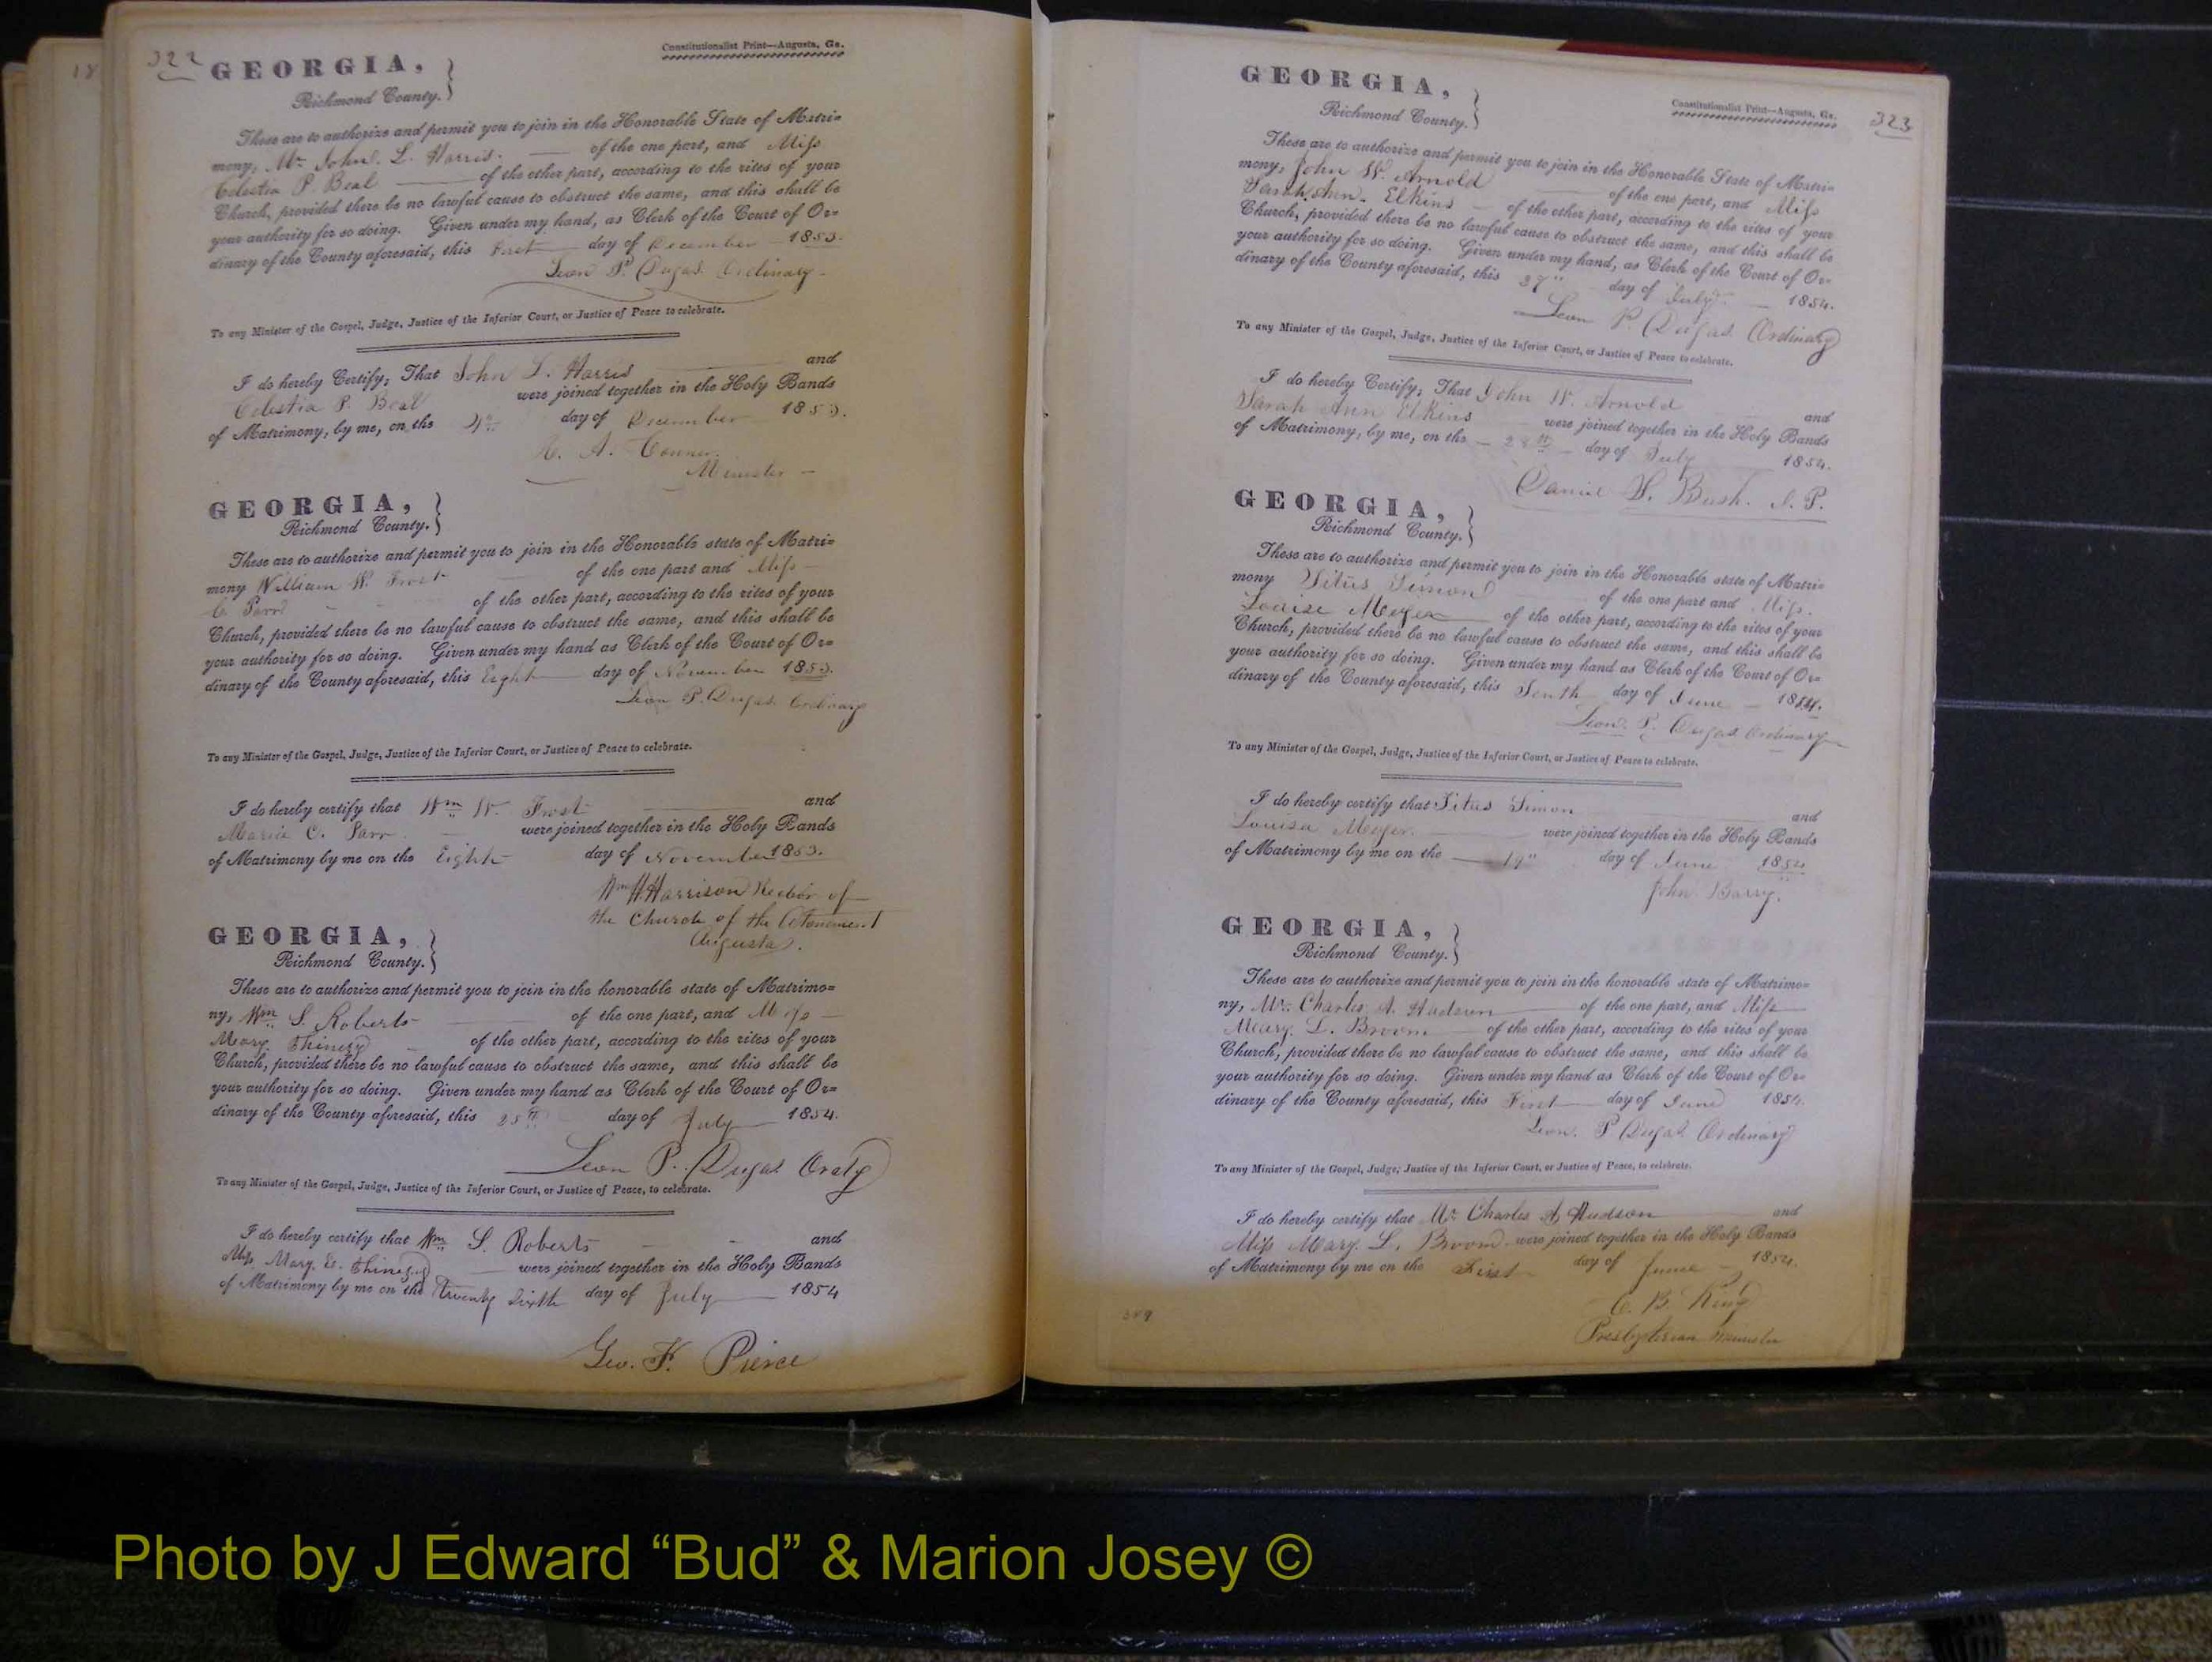 322
Constitutionalist Print—Augusta, Ga.
GEORGIA,
Richmond County.
These are to authorize and permit you to join in the Honorable State of Matri=
mony, Mr. John. L. Harris. of the one part, and Miss
Celestia P. Beal of the other part, according to the rites of your
Church, provided there be no lawful cause to obstruct the same, and this shall be
your authority for so doing. Given under my hand, as Clerk of the Court of Or=
dinary of the County aforesaid, this First day of December 1853.
Leon P. Dugas. Ordinary
To any Minister of the Gospel, Judge, Justice of the Inferior Court, or Justice of Peace to celebrate.
I do hereby Certify, That John L. Harris and
Celestia P. Beal were joined together in the Holy Bands
of Matrimony, by me, on the 4th day of December 1853.
A. Conner.
Minister
GEORGIA,
Richmond County.
These are to authorize and permit you to join in the Honorable state of Matri=
mony William W. Frost of the one part and Miss
C. Parr of the other part, according to the rites of your
Church, provided there be no lawful cause to obstruct the same, and this shall be
your authority for so doing. Given under my hand as Clerk of the Court of Or=
dinary of the County aforesaid, this Eight day of November 1853.
Leon P. Dugas. Ordinary
To any Minister of the Gospel, Judge, Justice of the Inferior Court, or Justice of Peace to celebrate.
I do hereby certify that Wm W. Frost and
Maria C. Parr were joined together in the Holy Bands
of Matrimony by me on the Eight day of November 1853.
Wm H. Harrison Rector of
the Church of the Atonement
Augusta.
GEORGIA,
Richmond County.
These are to authorize and permit you to join in the honorable state of Matrimo=
ny, Wm S. Roberts of the one part, and Miss
Mary of the other part, according to the rites of your
Church, provided there be no lawful cause to obstruct the same, and this shall be
your authority for so doing. Given under my hand as Clerk of the Court of Or=
dinary of the County aforesaid, this 25th day of July 1854.
Leon P. Dugas Ordty
To any Minister of the Gospel, Judge, Justice of the Inferior Court, or Justice of Peace, to celebrate.
I do hereby certify that Wm S. Roberts and
Miss Mary E. were joined together in the Holy Bands
of Matrimony by me on the Twenty Sixth day of July 1854
Geo. F. Pierce
323
Constitutionalist Print—Augusta, Ga.
GEORGIA,
Richmond County.
These are to authorize and permit you to join in the Honorable State of Matri=
mony, John W. Arnold of the one part, and Miss
Sarah Ann. Elkins of the other part, according to the rites of your
Church, provided there be no lawful cause to obstruct the same, and this shall be
your authority for so doing. Given under my hand, as Clerk of the Court of Or=
dinary of the County aforesaid, this 27" day of July 1854.
Leon P. Dugas. Ordinary
To any Minister of the Gospel, Judge, Justice of the Inferior Court, or Justice of Peace to celebrate.
I do hereby Certify, That John W. Arnold and
Sarah Ann Elkins were joined together in the Holy Bands
of Matrimony, by me, on the 28th day of July 1854.
Daniel Bush. J. P.
GEORGIA,
Richmond County.
These are to authorize and permit you to join in the Honorable state of Matri=
mony Titus Simon of the one part and Miss.
Louise Meyer of the other part, according to the rites of your
Church, provided there be no lawful cause to obstruct the same, and this shall be
your authority for so doing. Given under my hand as Clerk of the Court of Or=
dinary of the County aforesaid, this Tenth day of June 1854.
Leon. P. Dugas Ordinary
To any Minister of the Gospel, Judge, Justice of the Inferior Court, or Justice of Peace to celebrate.
I do hereby certify that Titus Simon and
Louisa Meyer. were joined together in the Holy Bands
of Matrimony by me on the day of June 1854
John Barry.
GEORGIA,
Richmond County.
These are to authorize and permit you to join in the honorable state of Matrimo=
ny, Mr. Charles A. Hudson of the one part, and Miss
Mary. L. Broom of the other part, according to the rites of your
Church, provided there be no lawful cause to obstruct the same, and this shall be
your authority for so doing. Given under my hand as Clerk of the Court of Or=
dinary of the County aforesaid, this First day of June 1854.
Leon. P Dugas. Ordinary
To any Minister of the Gospel, Judge, Justice of the Inferior Court, or Justice of Peace, to celebrate.
I do hereby certify that Mr. Charles A. Hudson and
Miss Mary. L. Broom were joined together in the Holy Bands
of Matrimony by me on the First day of June 1854.
C. B. King
Presbyterian Minister
Photo by J Edward “Bud” & Marion Josey ©